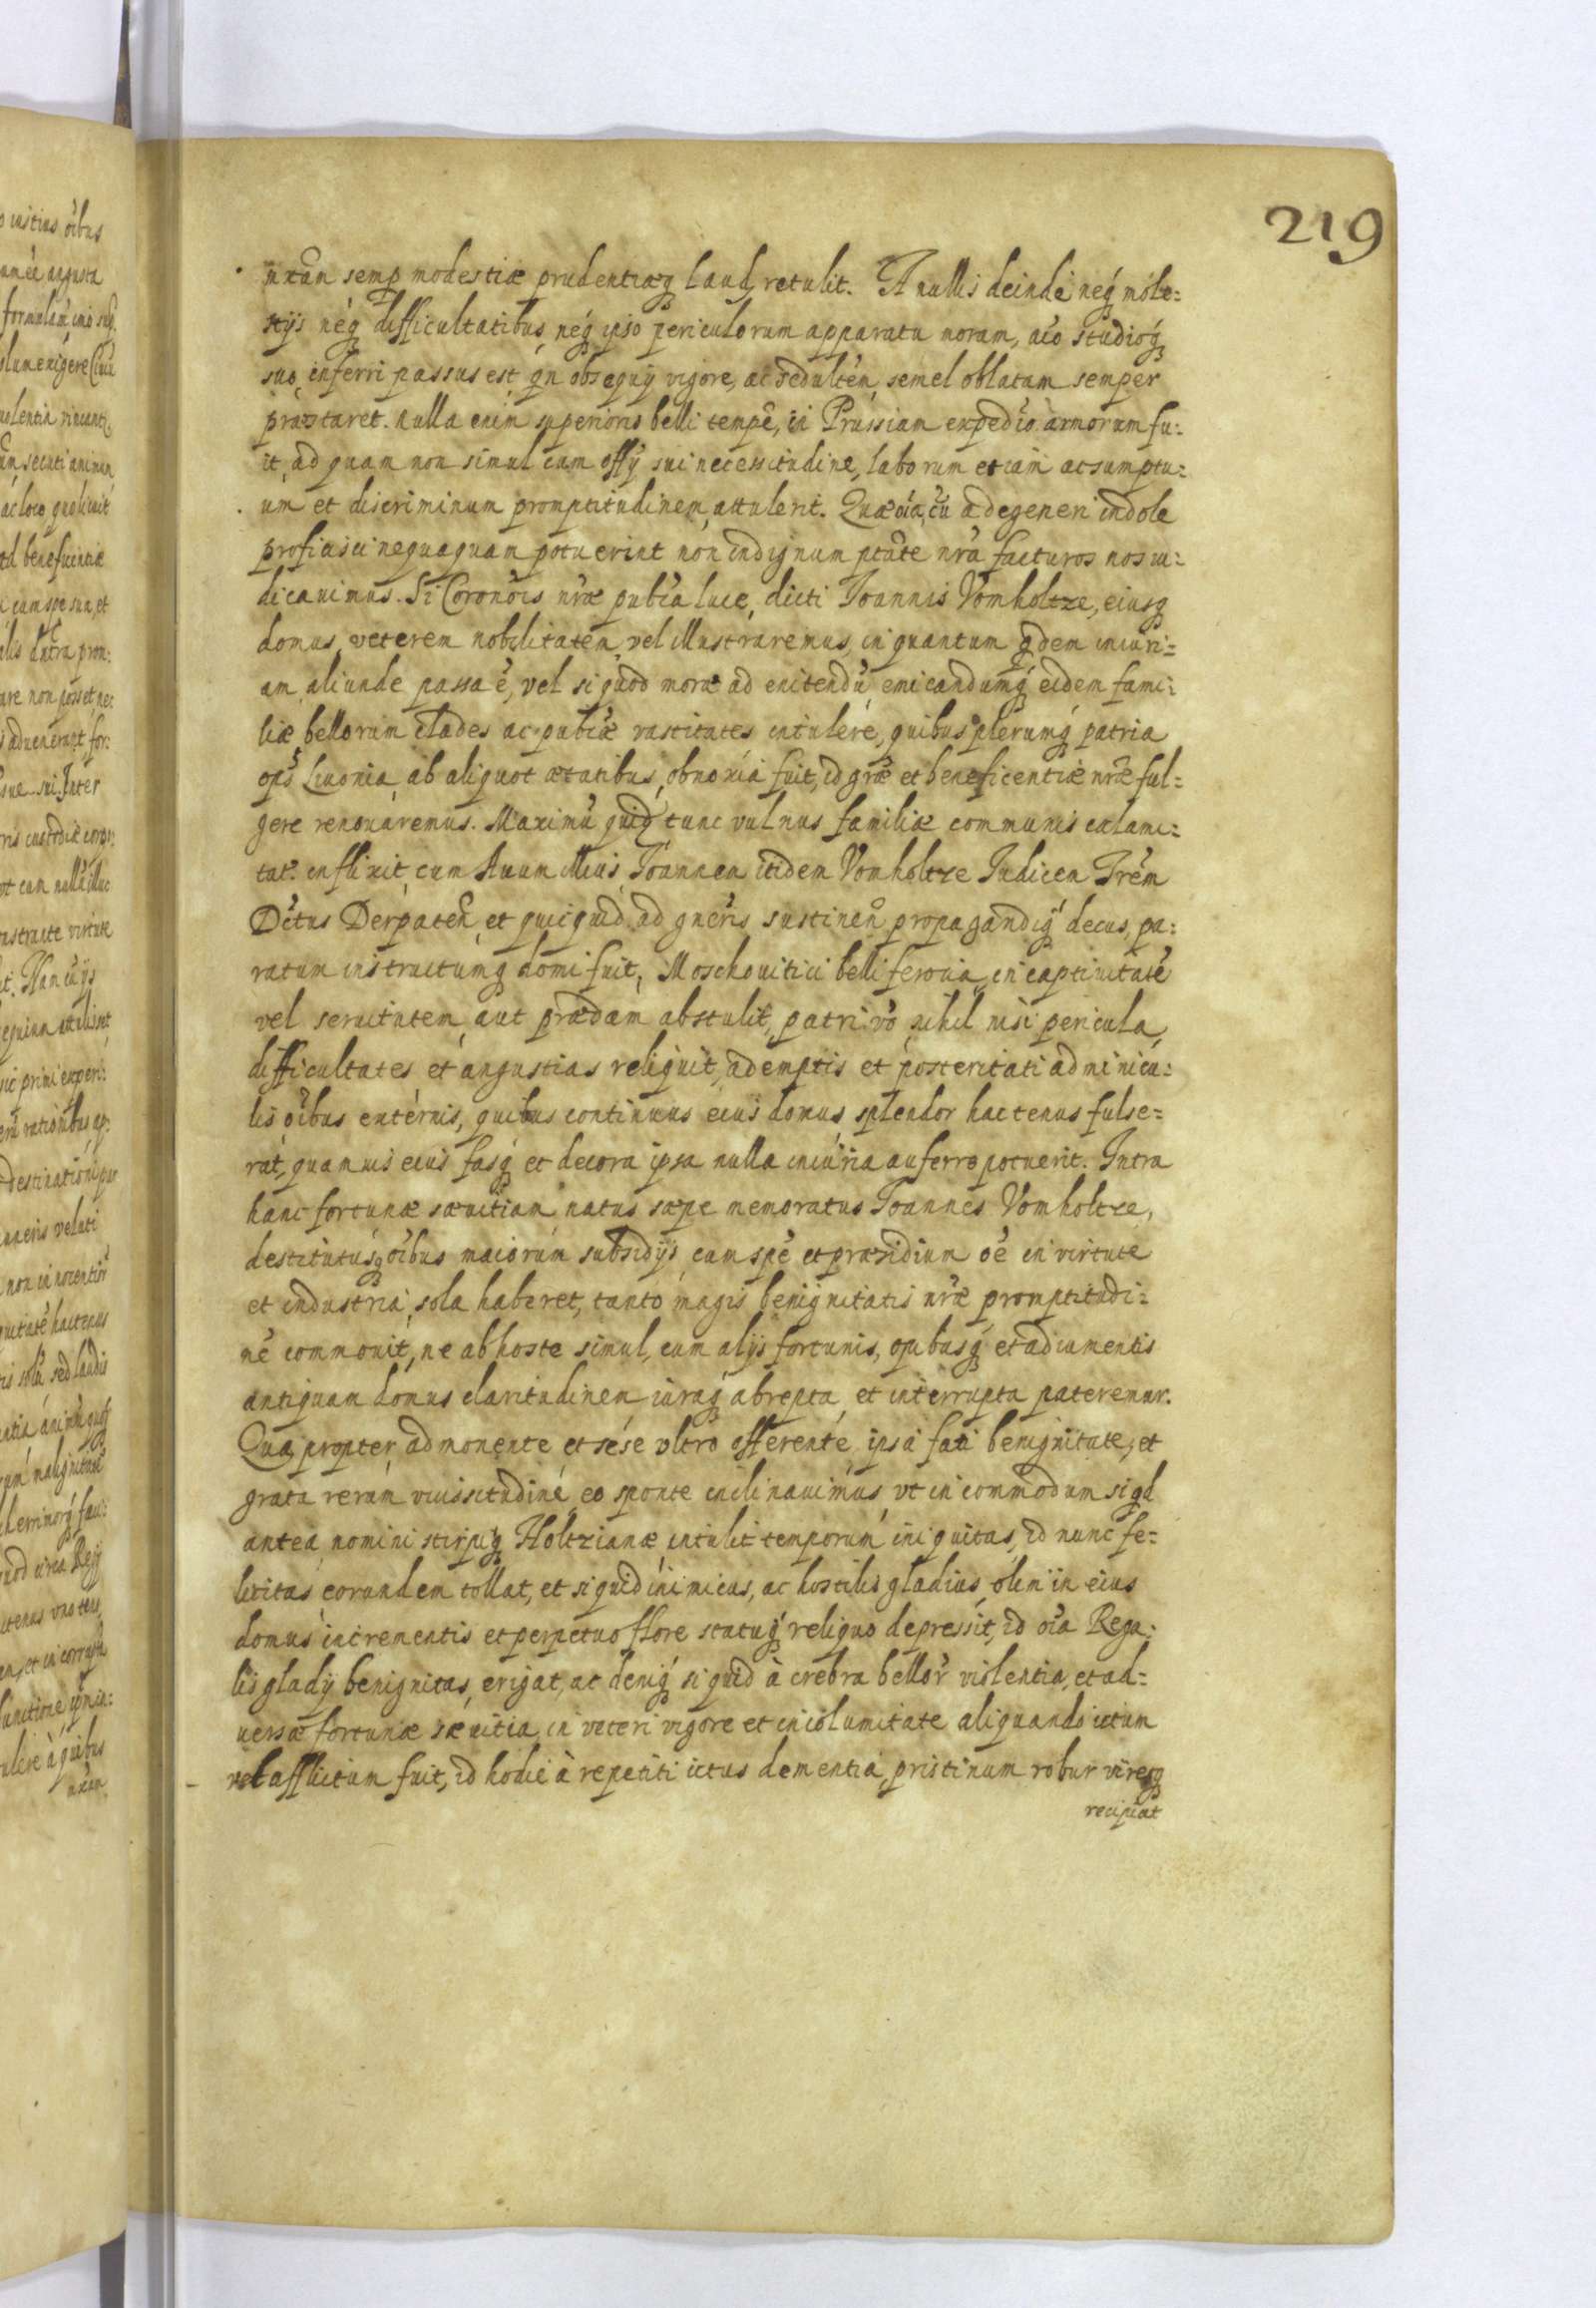 219
uxan semp modestiæ prudentiæq laud retulit. A nullis deinde neq mole=
stijs neq difficultatibus, neq ipso periculorum apparatu moram, aĩo studioq
suo inferri passus est qn obsequij vigore, ac sedulten semel oblatam semper
præstaret. nulla enim superioris belli tempe, in Prussiam expedĩo armorum fu=
it, ad quam non simul cum offij sui necessitudine, laborum etiam ac sumptu=
um et discriminum promptitudinem attulerit. Quæ oĩa, cũ a degeneri indole
proficisci nequaquam potuerint non indignum ptãte nrã facturos nos iu=
dicauimus. Si Coronõis nræ publca luce, dicti Joannis Vomholtze, eiusq
domus, veterem nobilitatem, vel illustraremus, in quantum qdem iniuri=
am aliunde passa ẽ, vel si quod moræ ad enitendũ emicandumq eidem fami=
liæ bellorum clades ac pubcæ vastitates intulere, quibus plerumq patria
ops Liuonia, ab aliquot ætatibus, obnoxia fuit, id græ et beneficentiæ nræ ful=
gere renouaremus. Maximũ quidẽ tunc vulnus familiæ communis calami=
tas inflixit, cum Auum illius, Joannem itidem Vomholtze Judicem Trẽm
Dctus Derpaten, et quicquid ad gneris sustinen propagandiq decus, pa=
ratum instructumq domi fuit, Moschouitici belli ferocia, in captiuitatẽ
vel seruitutem, aut prædam abstulit, patri vo nihil nisi pericula,
difficultates et angustias reliquit, ademptis et posteritati adminicu=
lis oĩbus externis, quibus continuus eius domus splendor hactenus fulse=
rat, quamuis eius fasq et decora ipsa nulla iniuria auferre potuerit. Intra
hanc fortunæ sæuitiam natus sæpe memoratus Joannes Vomholtze,
destitutusq oĩbus maiorum subsidijs, cum spẽ et præsidium oẽ in virtute
et industria sola haberet, tanto magis benignitatis nræ promptitudi=
nẽ commouit, ne ab hoste simul, cum alijs fortunis, opibusq et adiumentis
antiquam domus claritudinem iuraq abrepta, et interrupta pateremur.
Qua propter, admonente et sese vltro offerente, ipsa fati benignitate, et
grata rerum vicissitudine, eo sponte inclinauimus, vt incommodum si qd
antea nomini stirpiq Holtzianæ, intulit temporum iniquitas, id nunc fe=
licitas eorundem tollat, et si quid inimicus, ac hostilis gladius, olim in eius
domus incrementis et perpetuo flore statuq reliquo depressit, id oĩa Rega=
lis gladij benignitas, erigat, ac deniq si quid à crebra bellor violentia, et ad=
uersæ fortunæ sæuitia, in veteri vigore et incolumitate aliquando ictum
vel afflictum fuit, id hodie à repetiti ictus clementia, pristinum robur viresq
recipiat